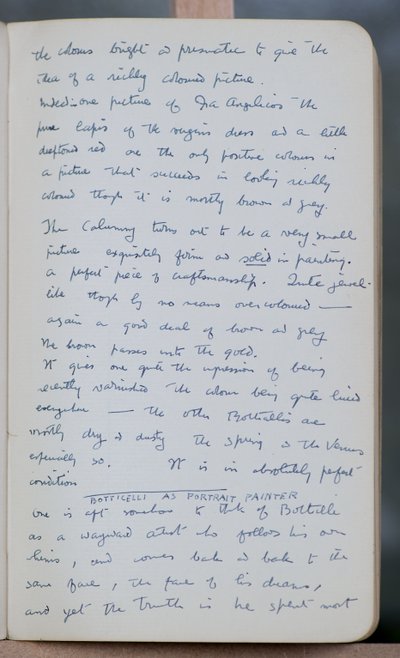 the colours bright & prismatic to give the
idea of a richly coloured picture.
Indeed in one picture of Fra Angelico's the
pure lapis of the virgin's dress and a little
deeptoned red are the only positive colours in
a picture that succeeds in looking richly
colored though it is mostly brown & grey.
The Calumny turns out to be a very small
picture exquisitely firm and solid in painting.
a perfect piece of craftsmanship. Quite jewel-
like though by no means overcoloured —
again a good deal of brown and grey
the brown passes into the gold.
It gives one quite the impression of being
recently varnished the colour being quite liquid
everywhere — the other Botticellis are
mostly dry & dusty the Spring & the Venus
especially so. It is in absolutely perfect
condition
BOTTICELLI AS PORTRAIT PAINTER
One is apt somehow to think of Botticelli
as a wayward artist who follows his own
whims, and comes back & back to the
same face, the face of his dreams,
and yet the truth is he spent most